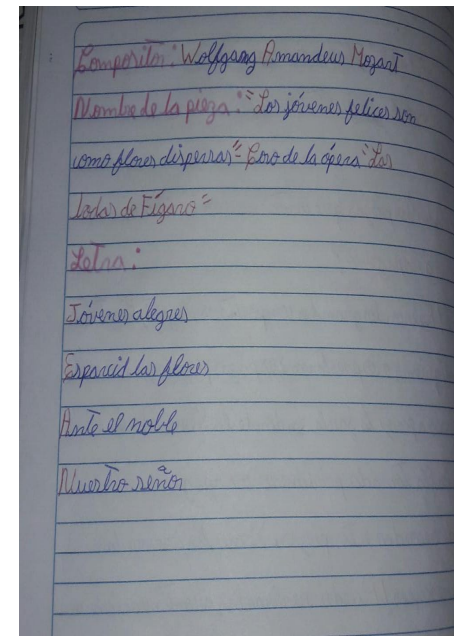 Compositor: Wolfgang Amandeus Mozart
Nombre de la pieza: "Los jóvenes felices son
como flores dispersas" Coro de la ópera "Las
bodas de Fígaro"
Letra:
Jóvenes alegres
Esparcid las flores
Ante el noble
Nuestro señor